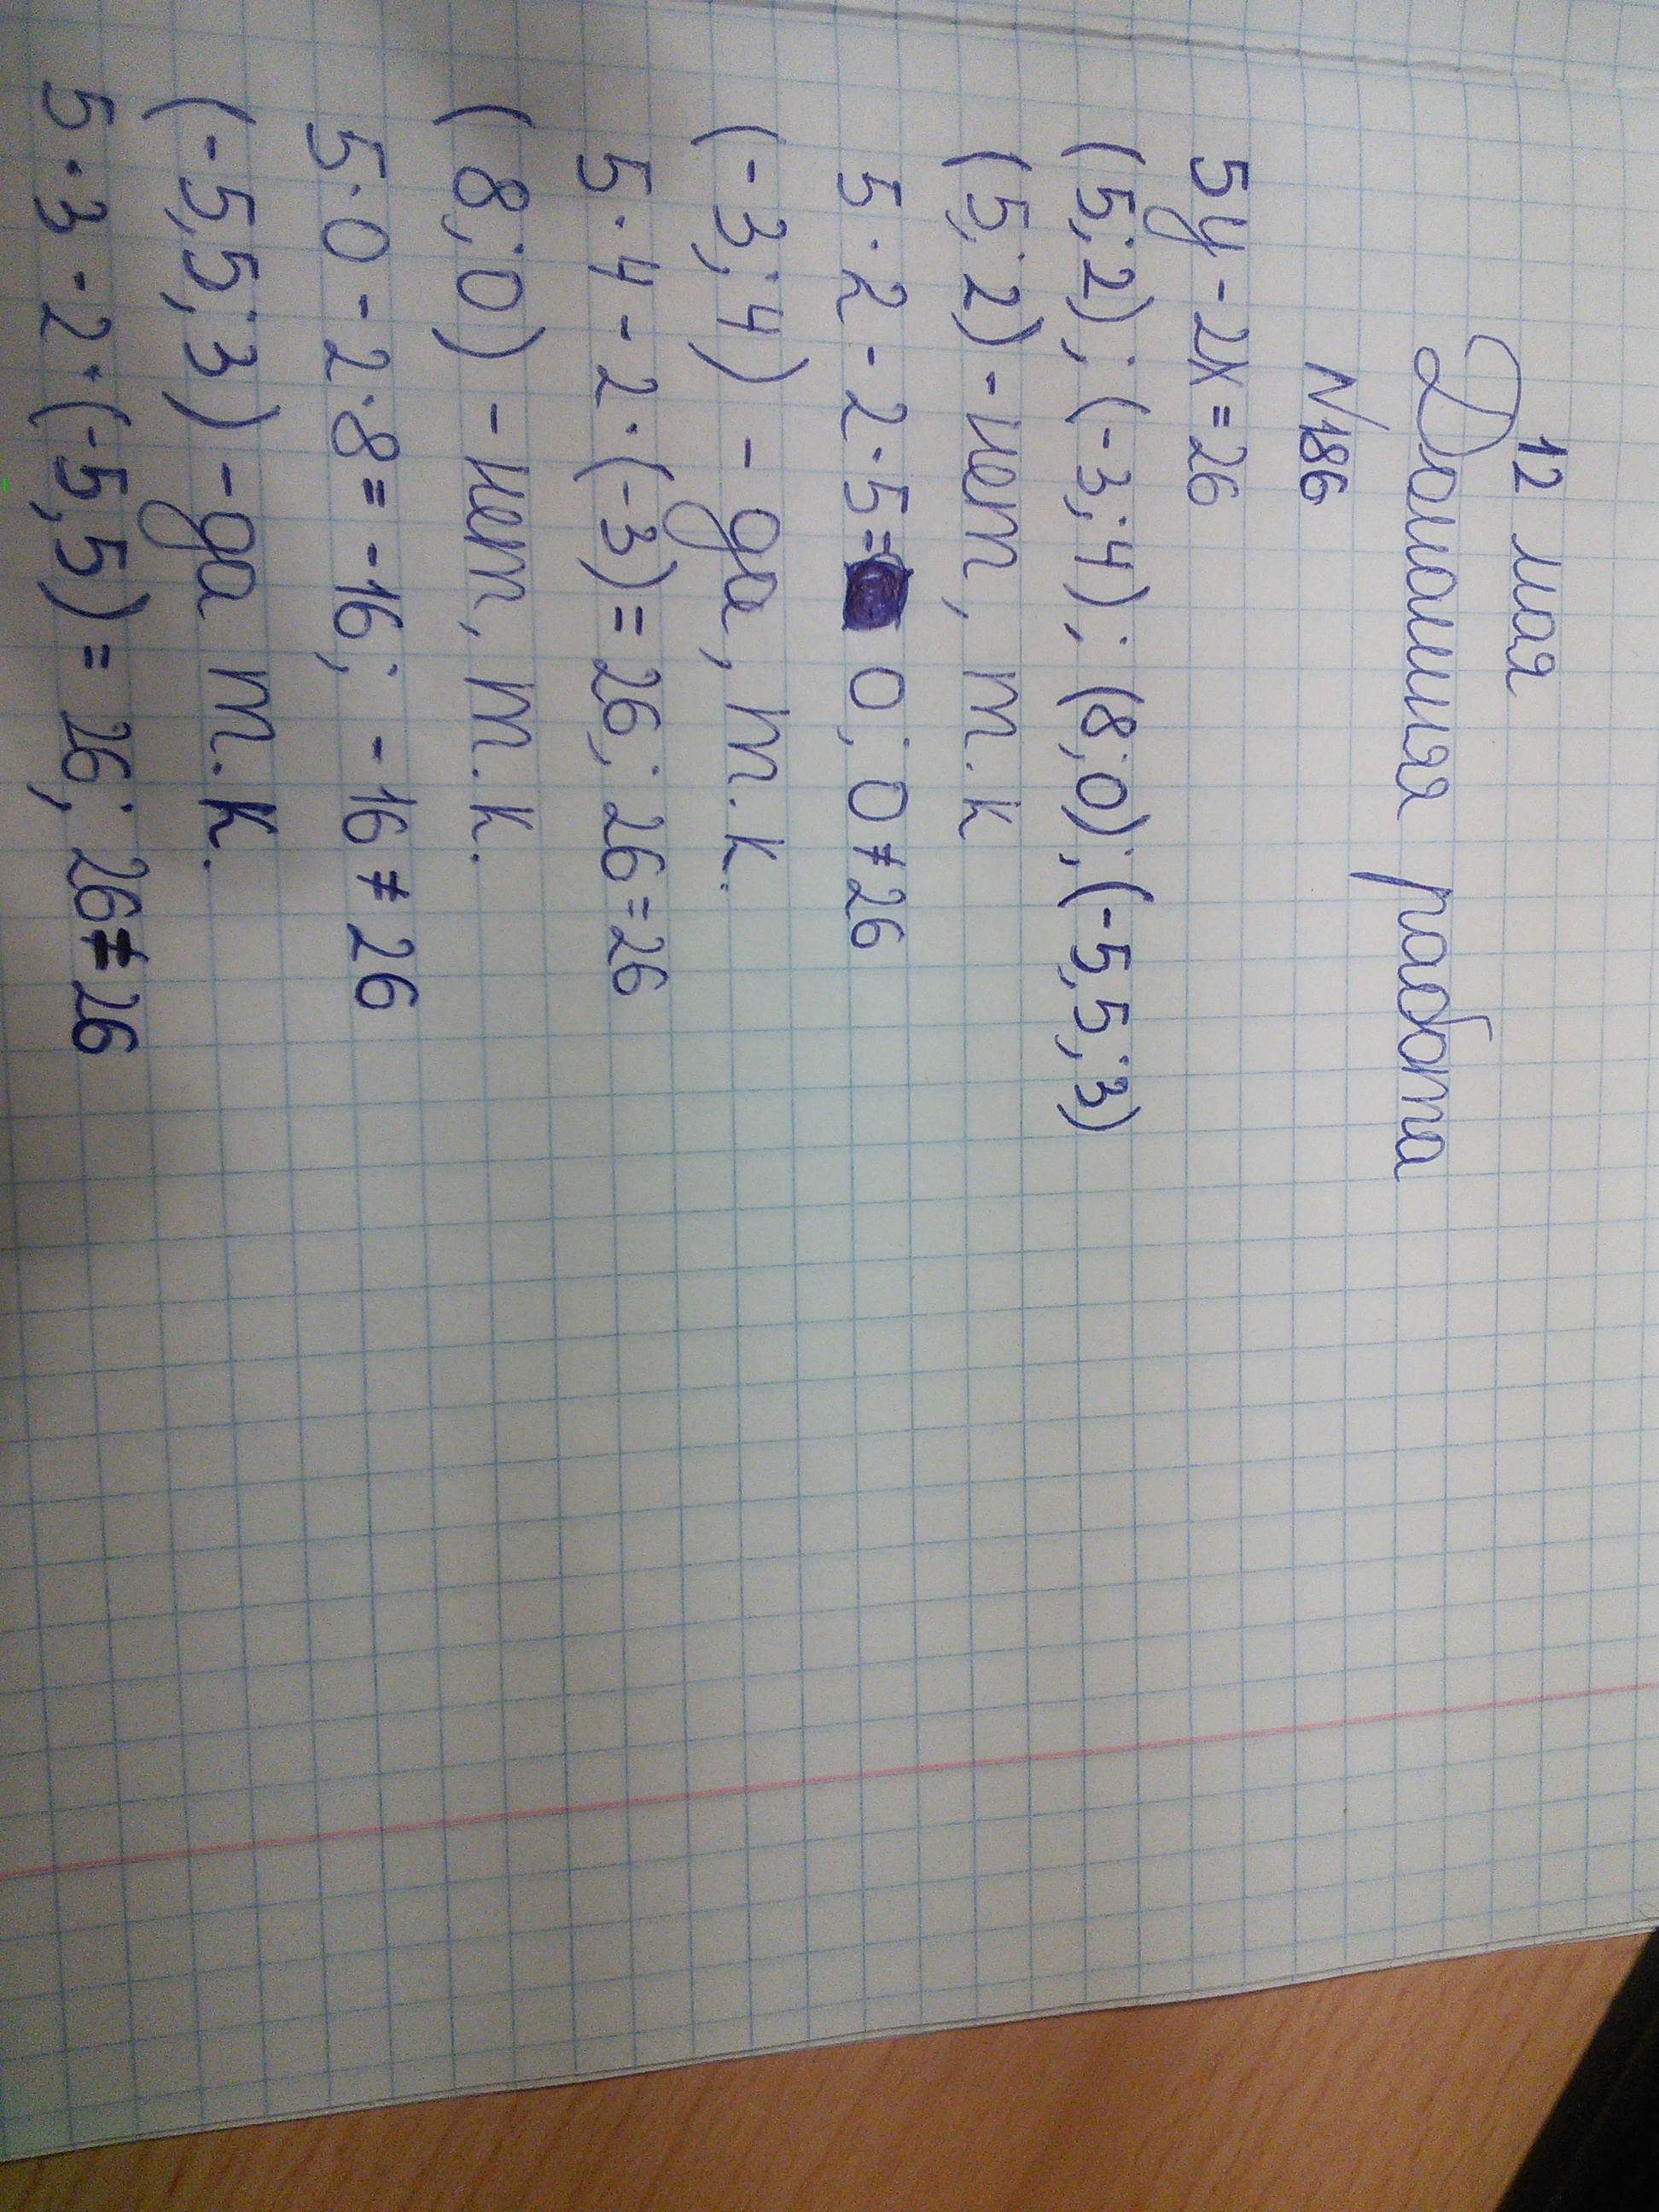 12 мая
Домашняя работа
N186
5y - 2x = 26
(5; 2); (-3; 4); (8; 0); (-5,5; 3)
(5; 2) - нет, т. к
5 · 2 - 2 · 5 = 0; 0 ≠ 26
(-3; 4) - да, т. к.
5 · 4 - 2 · (-3) = 26; 26 = 26
(8; 0) - нет, т. к.
5 · 0 - 2 · 8 = -16; -16 ≠ 26
(-5,5; 3) - да т. к.
5 · 3 - 2 · (-5,5) = 26; 26 ≠ 26